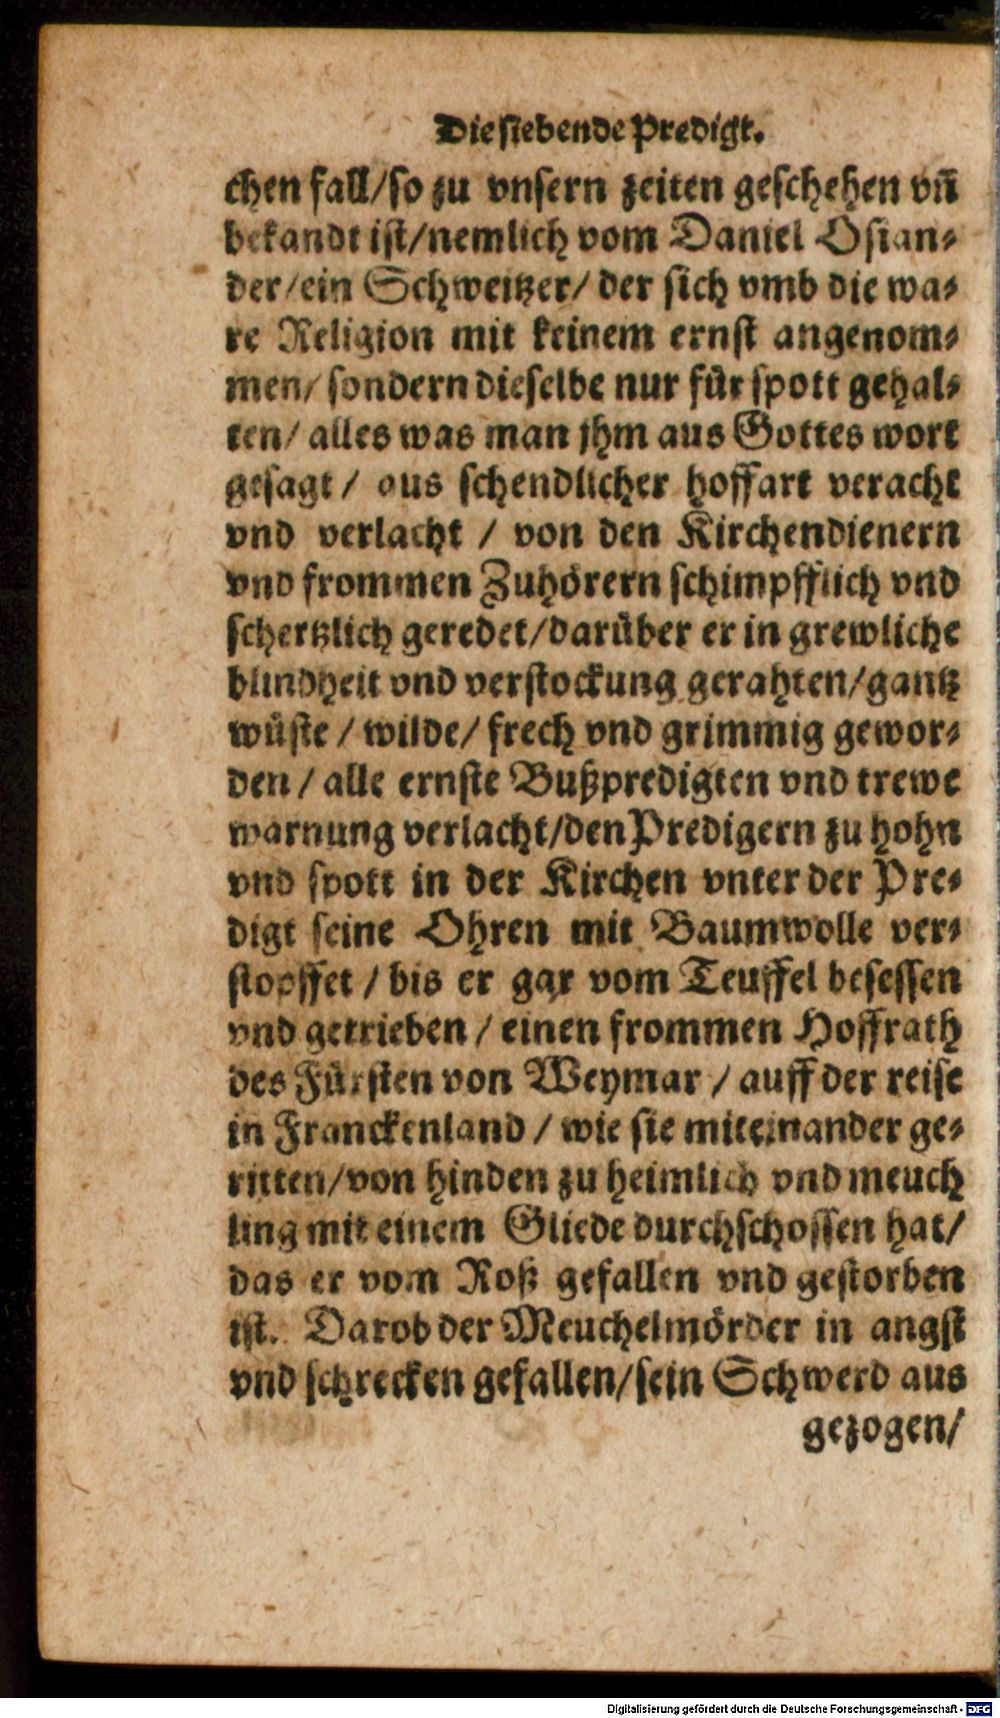 Die siebende Predigt.
chen fall/so zu vnsern zeiten geschehen vñ
bekandt ist/nemlich vom Daniel Osian⸗
der/ein Schweitzer/ der sich vmb die wa⸗
re Religion mit keinem ernst angenom⸗
men/ sondern dieselbe nur für spott gehal⸗
ten/ alles was man jhm aus Gottes wort
gesagt / aus schendlicher hoffart veracht
vnd verlacht / von den Kirchendienern
vnd frommen Zuhörern schimpfflich vnd
schertzlich geredet/darüber er in grewliche
blindheit vnd verstockung gerahten/gantz
wüste / wilde/ frech vnd grimmig gewor⸗
den / alle ernste Bußpredigten vnd trewe
warnung verlacht/den Predigern zu hohn
vnd spott in der Kirchen vnter der Pre⸗
digt seine Ohren mit Baumwolle ver⸗
stopffet / bis er gar vom Teuffel besessen
vnd getrieben / einen frommen Hoffrath
des Fürsten von Weymar / auff der reise
in Franckenland / wie sie miteinander ge⸗
ritten/von hinden zu heimlich vnd meuch
ling mit einem Gliede durchschossen hat/
das er vom Roß gefallen vnd gestorben
ist. Darob der Meuchelmörder in angst
vnd schrecken gefallen/sein Schwerd aus
gezogen/
Digitalisierung gefördert durch die Deutsche Forschungsgemeinschaft - DFG